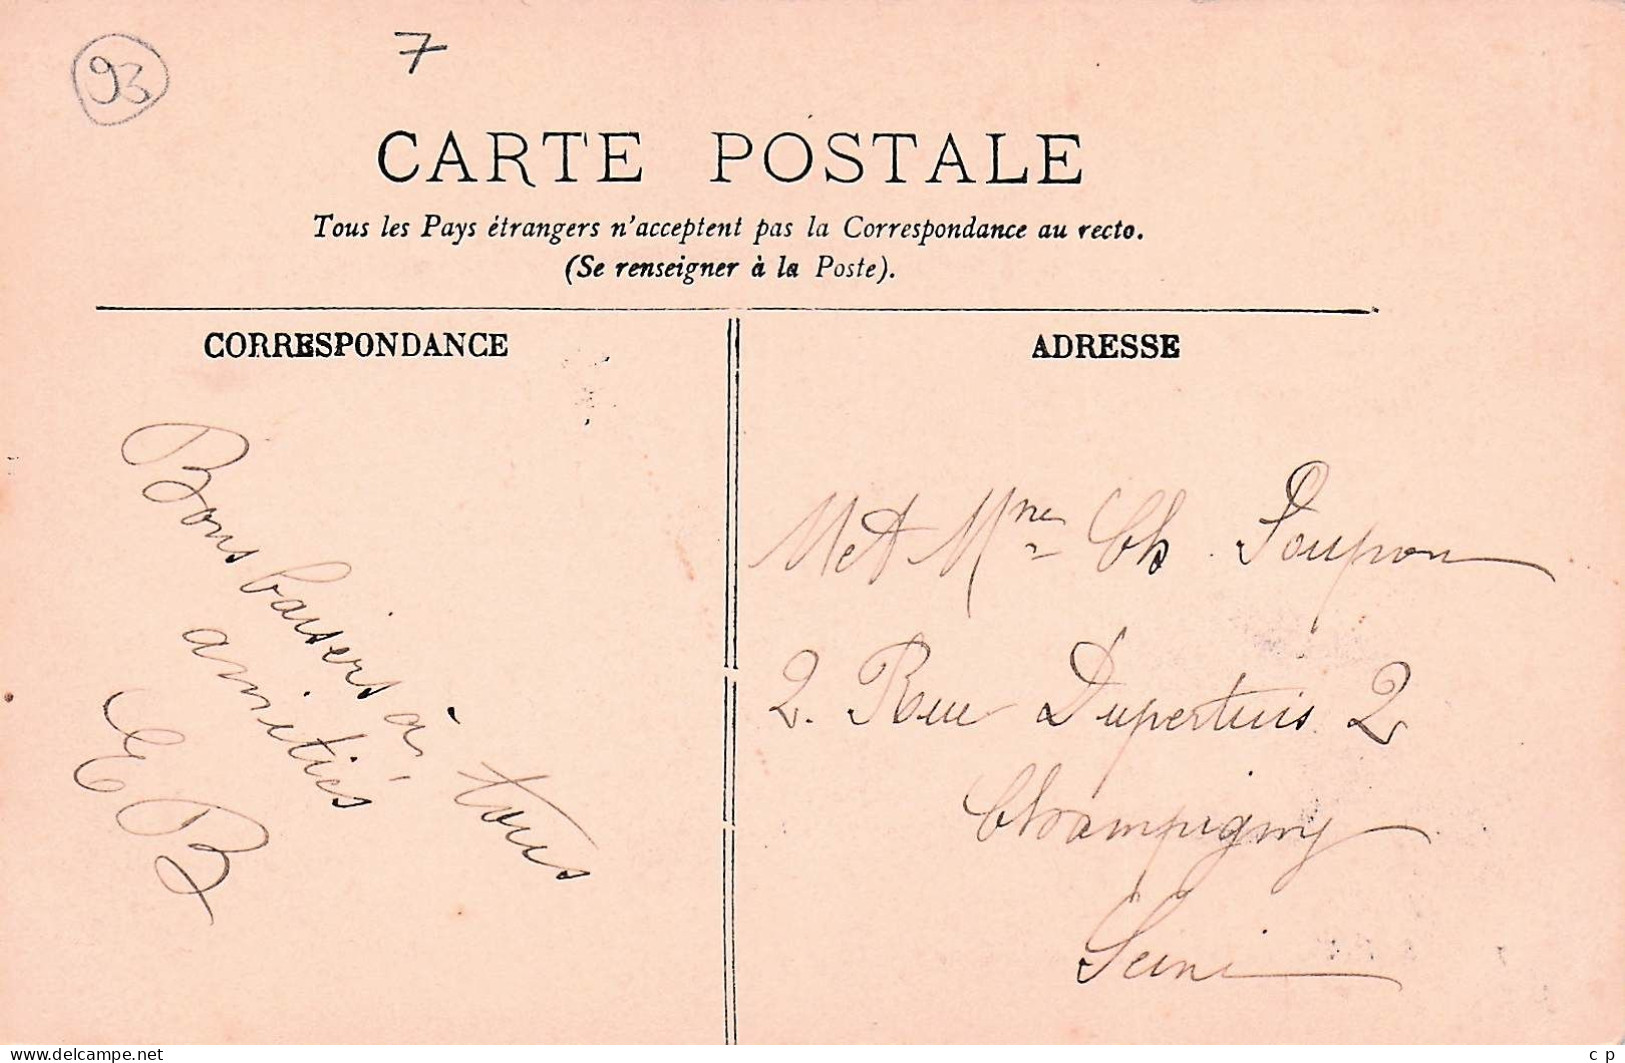 93
7
CARTE POSTALE
Tous les Pays étrangers n'acceptent pas la Correspondance au recto.
(Se renseigner à la Poste).
CORRESPONDANCE
Bons baisers à tous
amitiés
E B
ADRESSE
M et Mme Ch.
2. Rue Dupertuis 2
Champigny
Seine
www.delcampe.net
c p